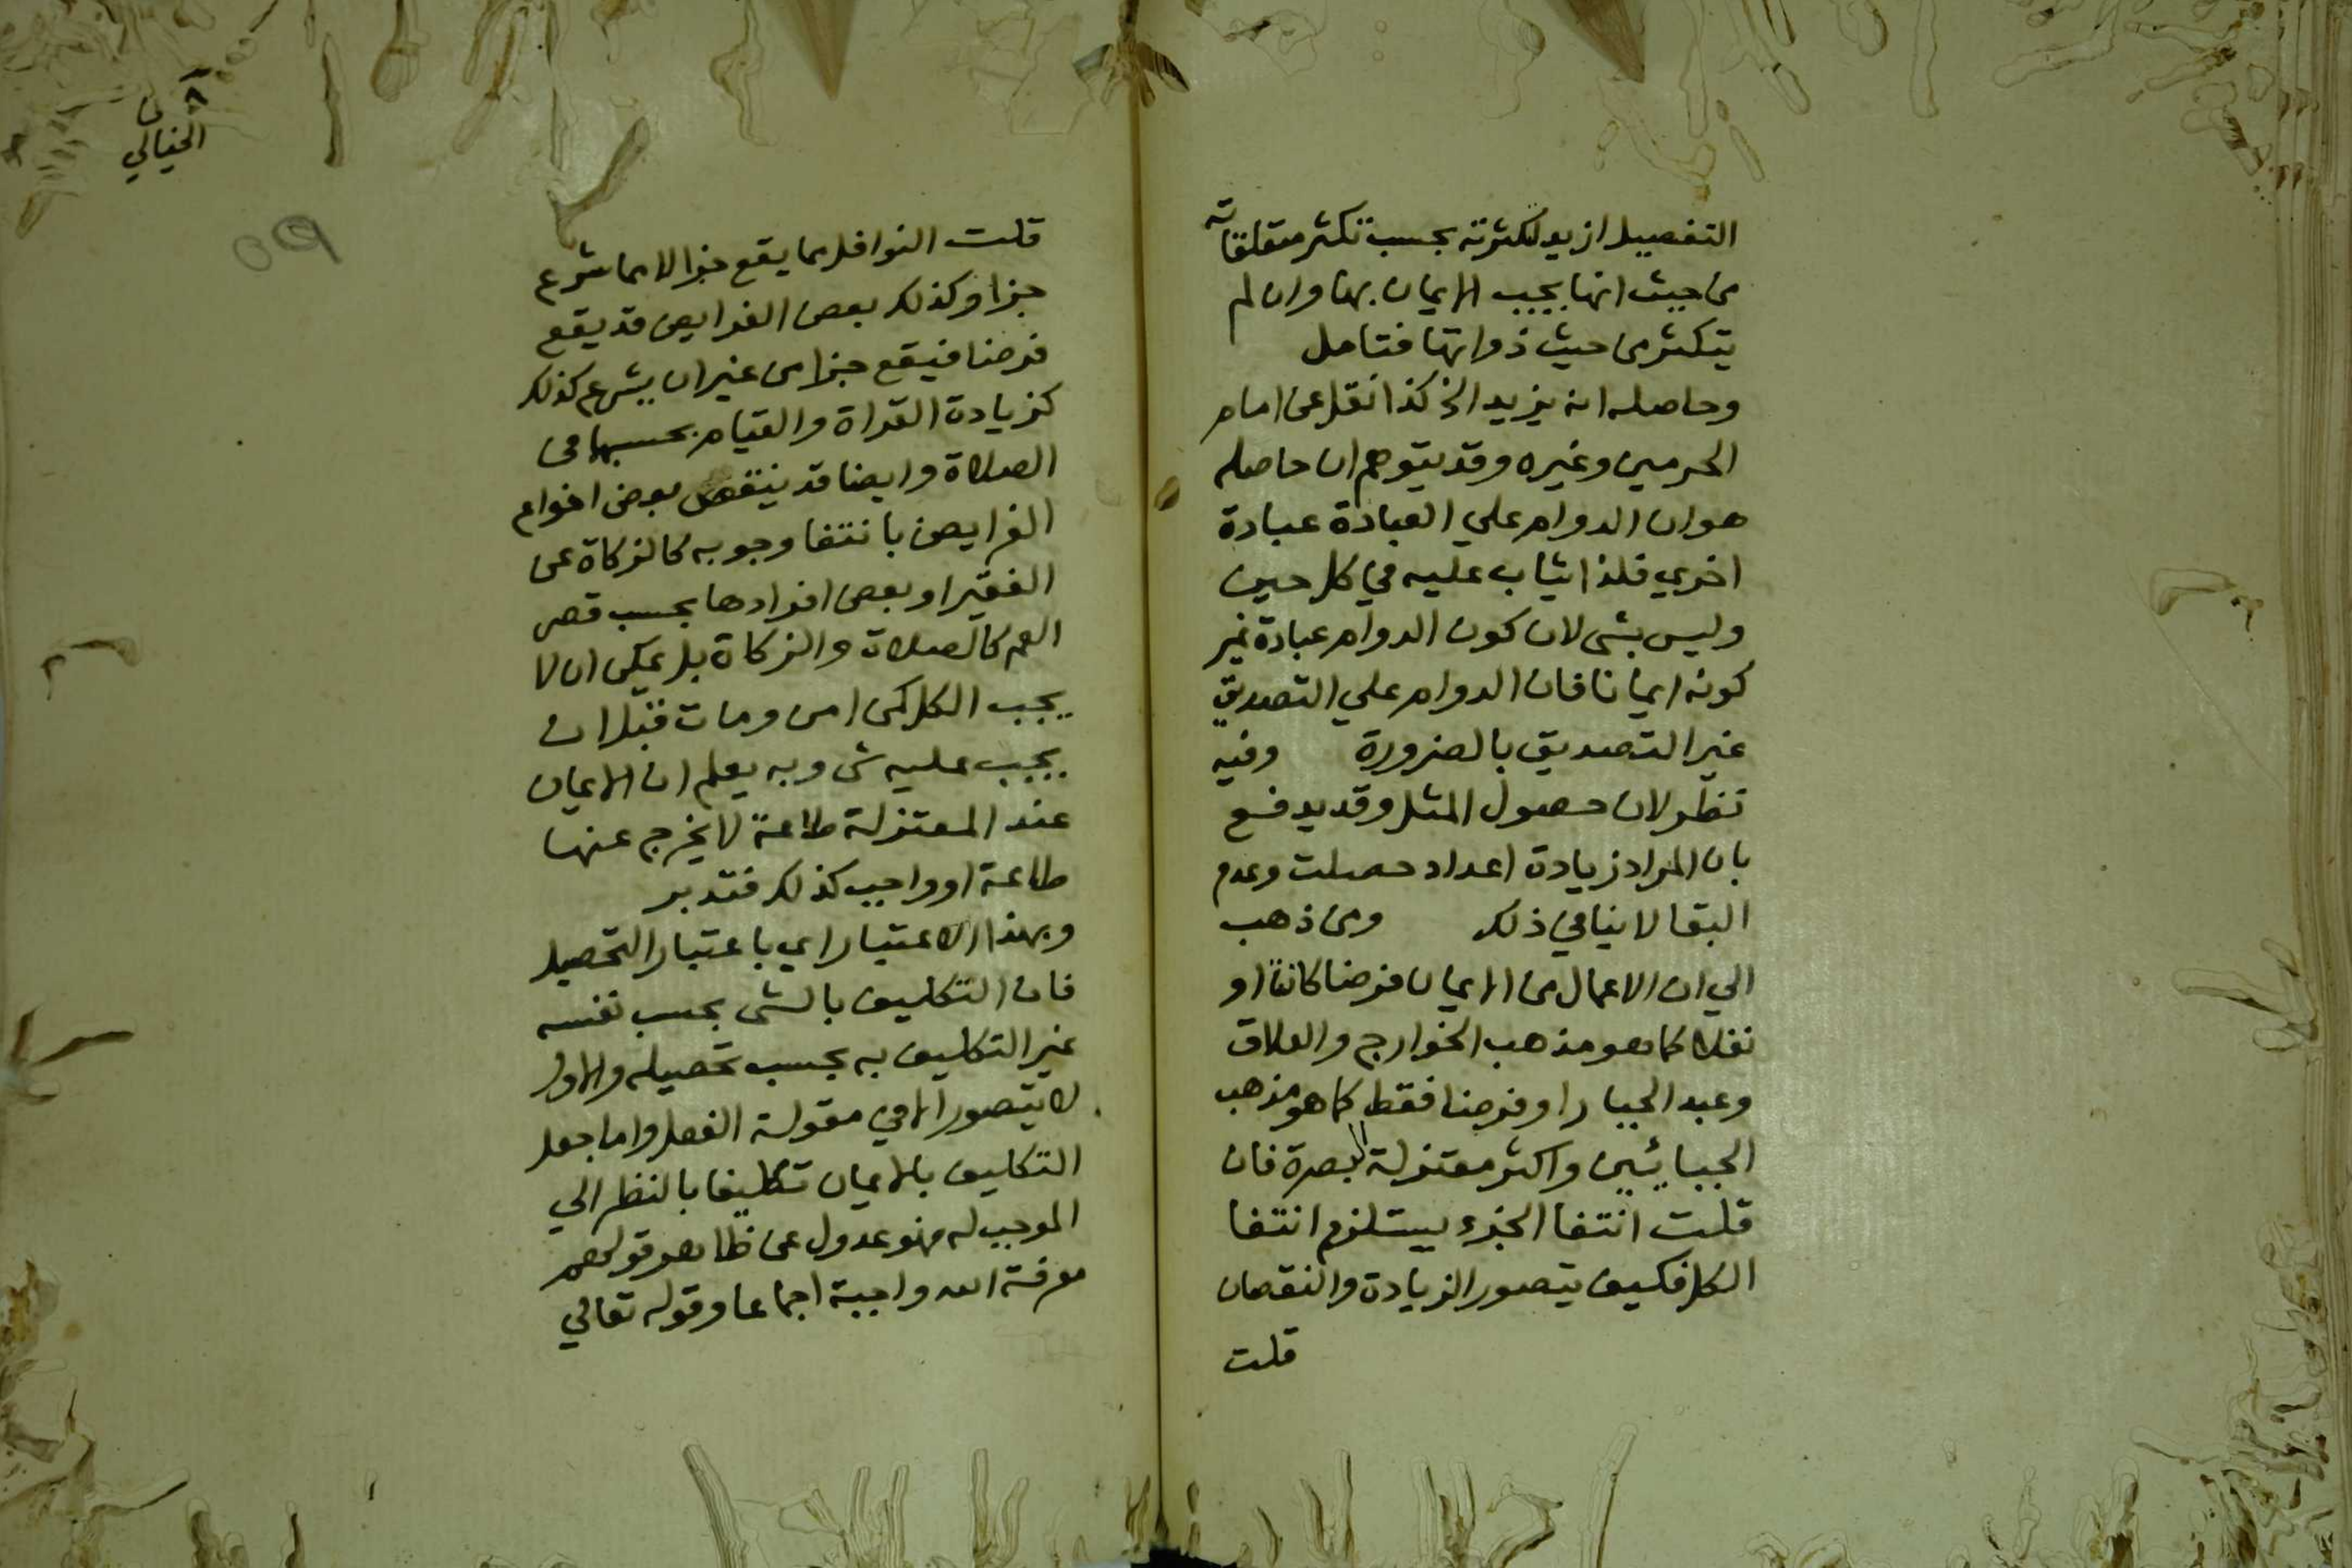 التفصيل ازيد لكثرته بحسب تكثر متعلقاته
من حيث انها يجب الايمان بها وان لم
يتكثر من حيث ذواتها فتامل
وحاصله انه يزيد الخ كذا نقل عن امام
الحرمين وغيره وقد يتوهم ان حاصله
هو ان الدوام علي العبادة عبادة
اخري فلذا يثاب عليه في كل حين
وليس بشي لان كون الدوام عبادة غير
كونه ايمانا فان الدوام علي التصديق
غير التصديق بالضرورة وفيه
نظر لان حصول المثل وقد يدفع
بان المراد زيادة اعداد حصلت وعدم
البقا لا ينافي ذلك ومن ذهب
الي ان الاعمال من الايمان فرضا كانت او
نفلا كما هو مذهب الخوارج والعلاف
وعبد الجبار او فرضا فقط كما هو مذهب
الجبائيين واكثر معتزلة البصرة فان
قلت انتفا الجزء يستلزم انتفا
الكل فكيف يتصور الزيادة والنقصان
قلت
٨
من
الخيالي
٥٩
قلت النوافل مما يقع جزا لا مما شرع
جزا وكذلك بعض الفرايض قد يقع
فرضا فيقع جزا من غير ان يشرع كذلك
كزيادة القراة والقيام بحسبها في
الصلاة وايضا قد ينتقص بعض انواع
الفرايض بانتفا وجوبه كالزكاة عن
الفقير او بعض افرادها بحسب قصر
العمر كالصلاة والزكاة بل يمكن ان لا
يجب الكل كمن امن ومات قبل ان
يجب عليه شي وبه يعلم ان الايمان
عند المعتزلة طاعة لا يخرج عنها
طاعة او واجب كذلك فتدبر
وبهذا الاعتبار اي باعتبار التحصيل
فان التكليف بالشي بحسب نفسه
غير التكليف به بحسب تحصيله والاول
لا يتصور الا في مقولة الفعل واما جعل
التكليف بالايمان تكليفا بالنظر الي
الموجب له فهو عدول عن ظاهر قولهم
معرفة الله واجبة اجماعا وقوله تعالي